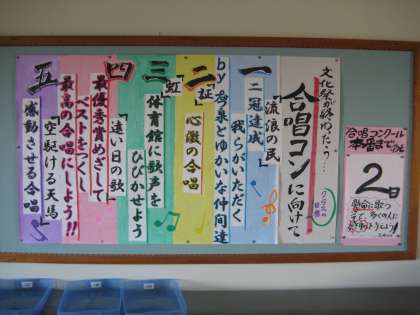 文化祭が終わったら…
合唱コンに向けて
クラスの目標
一
「流浪の民」
二冠達成
我らがいただく
by 秀泉とゆかいな仲間達
二
「証」
心ひとつの合唱
三
「虹」
体育館に歌声を
ひびかせよう
四
「遠い日の歌」
最優秀賞めざして
ベストをつくし
最高の合唱にしよう!!
五
「空駆ける天馬」
感動させる合唱
合唱コンクール
本番まであと
2日